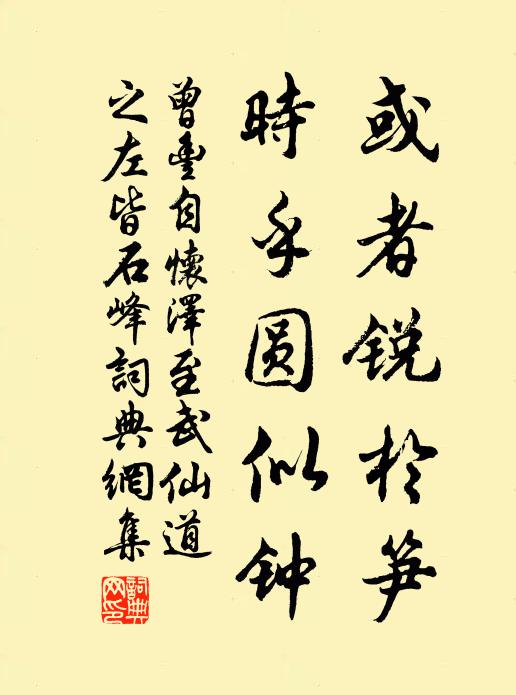 或者锐於笋
時乎圆似钟
曾豐自懷澤至武仙道
之左皆石峰詞典網集
詞典网印